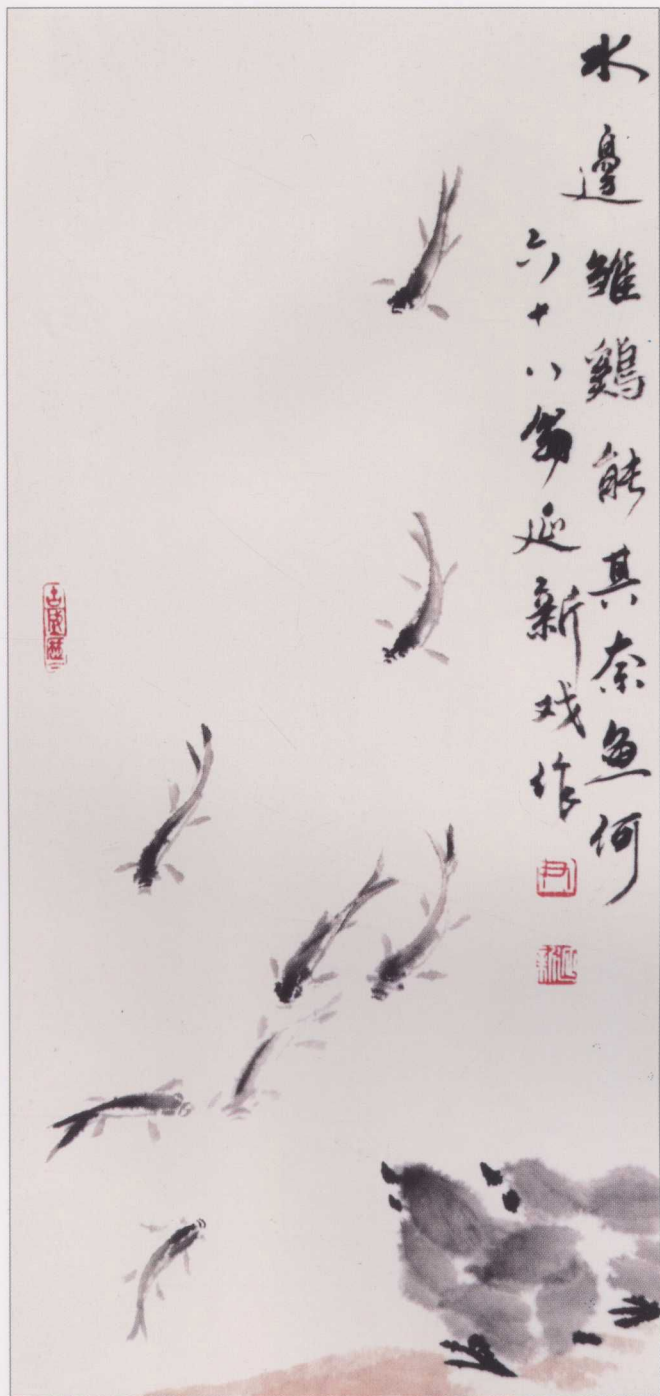 水邊雛鷄能其奈魚何
六十八翁延新戏作
尹
延新